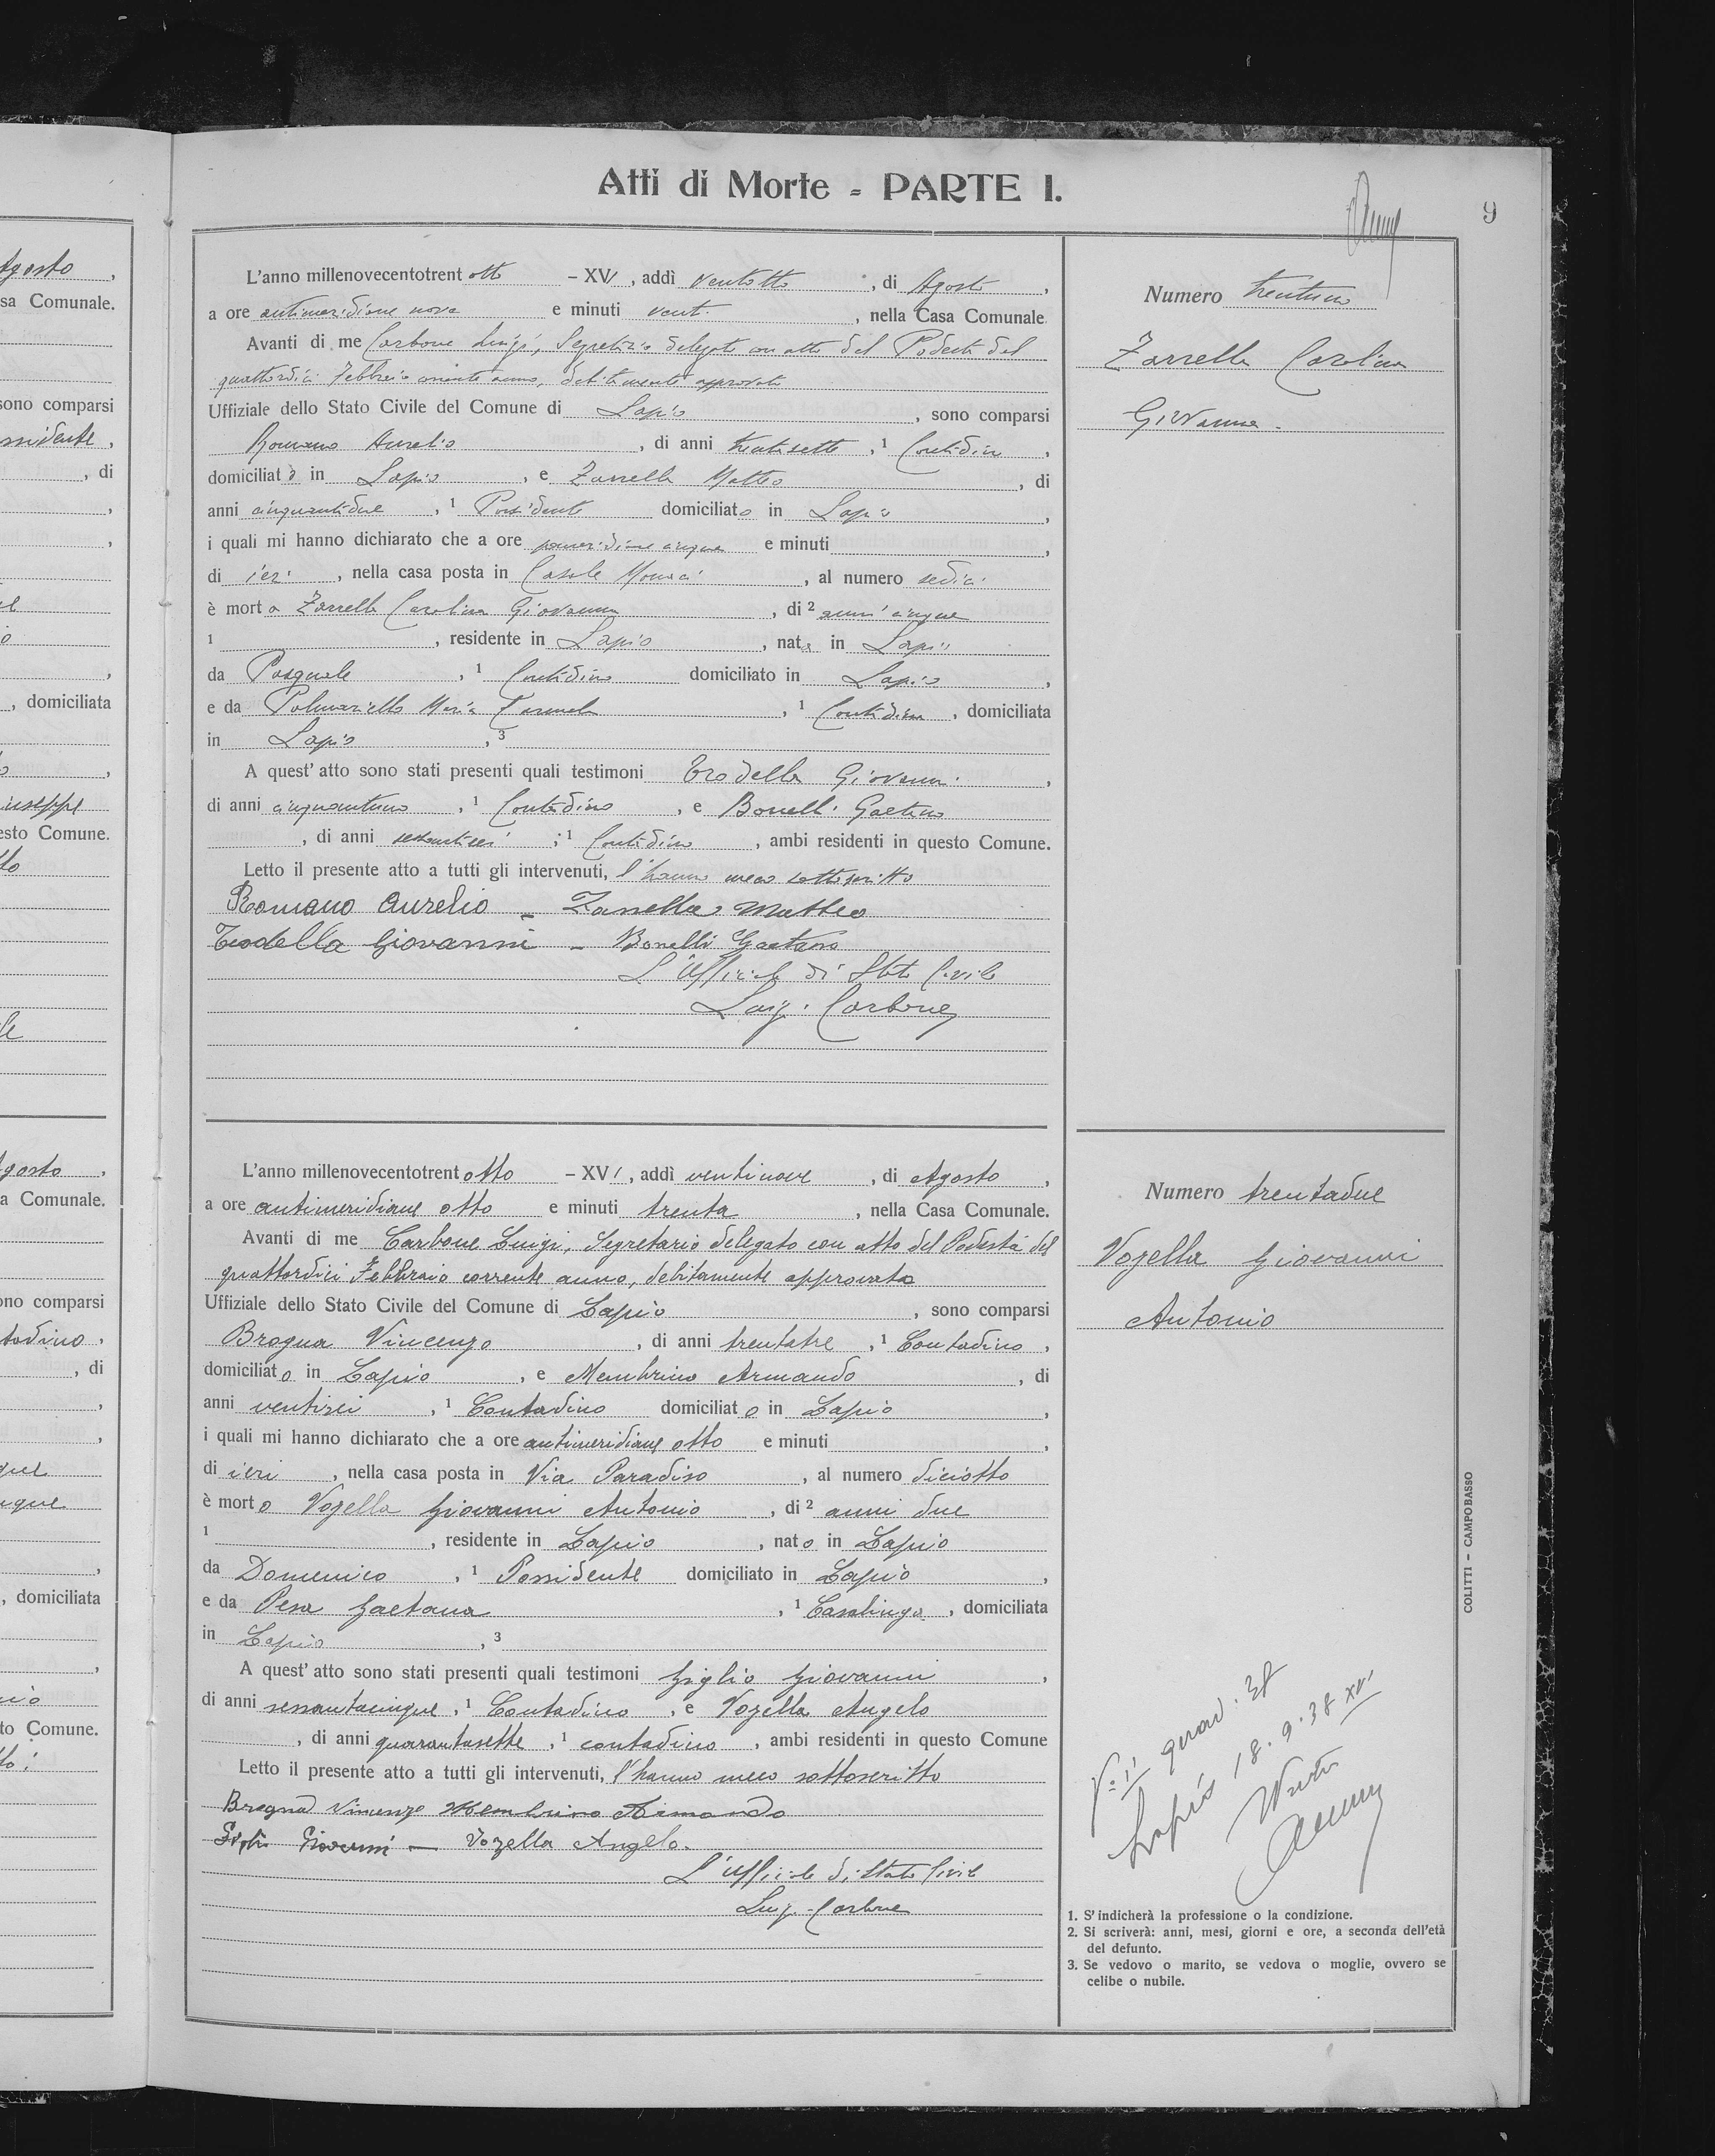 Atti di Morte - PARTE I.
9
L'anno millenovecentotrent otto - XVI, addì ventotto, di Agosto,
a ore antimeridiane nove e minuti venti, nella Casa Comunale.
Avanti di me Carbone Luigi, Segretario delegato con atto del Podestà del
quattordici Febbraio corrente anno, debitamente approvato
Uffiziale dello Stato Civile del Comune di Lapio, sono comparsi
Romano Aurelio, di anni trentasette, 1 Contadino,
domiciliato in Lapio, e Zarrella Matteo, di
anni cinquantadue, 1 Possidente domiciliato in Lapio,
i quali mi hanno dichiarato che a ore pomeridiane cinque e minuti ,
di ieri, nella casa posta in Casale Monaci, al numero sedici
è morta Zarrella Carolina Giovanna, di 2 anni cinque
1 , residente in Lapio, nata in Lapio
da Pasquale, 1 Contadino domiciliato in Lapio,
e da Polmariello Maria Carmela, 1 Contadina, domiciliata
in Lapio, 3
A quest'atto sono stati presenti quali testimoni Trodella Giovanni,
di anni cinquantuno, 1 Contadino, e Bonelli Gaetano
, di anni sessantasei, 1 Contadino, ambi residenti in questo Comune.
Letto il presente atto a tutti gli intervenuti, l'hanno meco sottoscritto
Romano Aurelio - Zarrella Matteo
Trodella Giovanni - Bonelli Gaetano
L'Ufficiale di Stato Civile
Luigi Carbone
Numero trentuno
Zarrella Carolina
Giovanna.
L'anno millenovecentotrent otto - XVI, addì ventinove, di Agosto,
a ore antimeridiane otto e minuti trenta, nella Casa Comunale.
Avanti di me Carbone Luigi, Segretario delegato con atto del Podestà del
quattordici Febbraio corrente anno, debitamente approvato
Uffiziale dello Stato Civile del Comune di Lapio, sono comparsi
Brogna Vincenzo, di anni trentatre, 1 Contadino,
domiciliato in Lapio, e Membrino Armando, di
anni ventisei, 1 Contadino domiciliato in Lapio,
i quali mi hanno dichiarato che a ore antimeridiane otto e minuti ,
di ieri, nella casa posta in Via Paradiso, al numero diciotto
è morto Vozella Giovanni Antonio, di 2 anni due
1 , residente in Lapio, nato in Lapio
da Domenico, 1 Possidente domiciliato in Lapio,
e da Pesa Gaetana, 1 Casalinga, domiciliata
in Lapio, 3
A quest'atto sono stati presenti quali testimoni Giglio Giovanni,
di anni sessantacinque, 1 Contadino, e Vozella Angelo
, di anni quarantasette, 1 contadino, ambi residenti in questo Comune
Letto il presente atto a tutti gli intervenuti, l'hanno meco sottoscritto
Brogna Vincenzo Membrino Armando
Giglio Giovanni - Vozella Angelo.
L'Ufficiale di Stato Civile
Luigi Carbone
Numero trentadue
Vozella Giovanni
Antonio
Lapio 18.9.38 XVI
1. S'indicherà la professione o la condizione.
2. Si scriverà: anni, mesi, giorni e ore, a seconda dell'età
del defunto.
3. Se vedovo o marito, se vedova o moglie, ovvero se
celibe o nubile.
COLITTI - CAMPOBASSO
Agosto,
sa Comunale.
sono comparsi
, di
, domiciliata
iuseppe
esto Comune.
Agosto,
a Comunale.
ono comparsi
tadino,
, di
, domiciliata
to Comune.